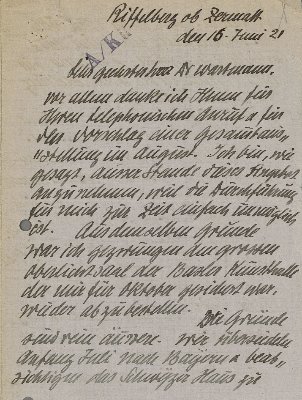 Riffelberg ob Zermatt
den 16. Juni 21
A/Ku
Sehr geehrter Herr Dr Wartmann.
vor allem danke ich Ihnen für
Ihren telephonischen Anruf & für
den Vorschlag einer Gesamtaus-
stellung im August. Ich bin, wie
gesagt, ausser Stande dieses Angebot
anzunehmen, weil die Durchführung
für mich zur Zeit einfach unmöglich
ist. Aus denselben Gründe
war ich gezwungen den grossen
Oberlichtsaal der Basler Kunsthalle
der mir für Oktober gesichert war,
wieder abzubestellen.
Die Gründe
sind rein äussere. Wir übersiedeln
Anfang Juli nach Bayern & beab-
sichtigen das Schweizer Haus zu